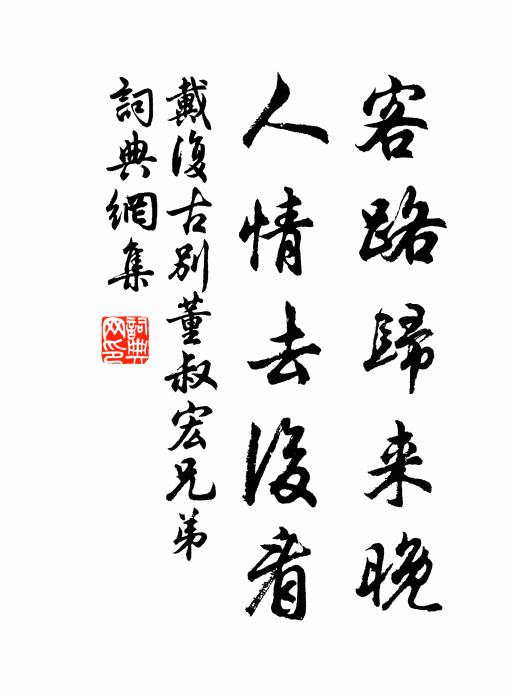 客路歸来晚
人情去後看
戴復古別董叔宏兄弟
詞典網集
詞典网印